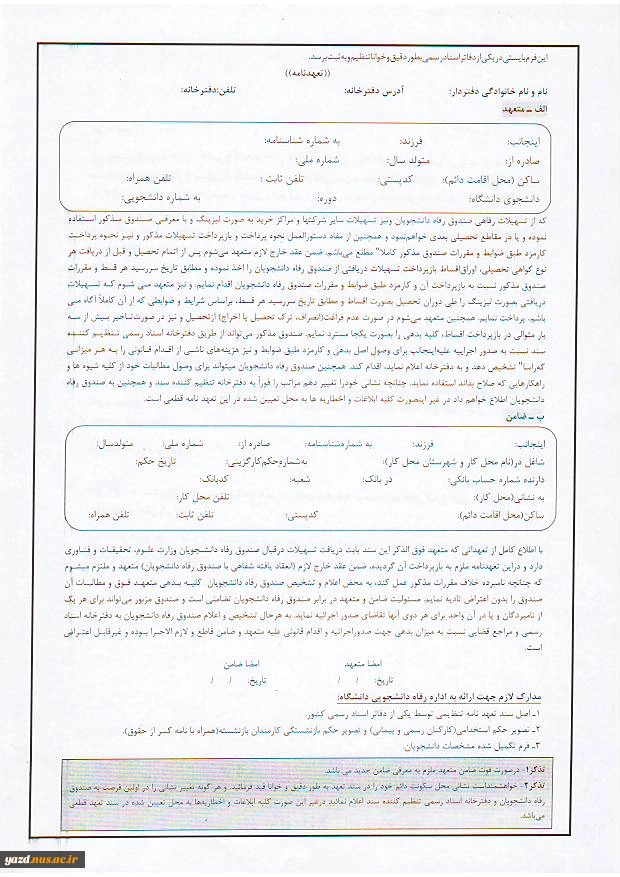 این فرم بایستی در یکی از دفاتر اسناد رسمی بطور دقیق و خوانا تنظیم و به ثبت برسد.
((تعهدنامه))
نام و نام خانوادگی دفتردار: آدرس دفترخانه: تلفن:دفترخانه:
الف ــ متعهد
اینجانب: فرزند: به شماره شناسنامه:
صادره از: متولد سال: شماره ملی:
ساکن (محل اقامت دائم): کدپستی: تلفن ثابت : تلفن همراه:
دانشجوی دانشگاه: دوره: به شماره دانشجویی:
که از تسهیلات رفاهی صندوق رفاه دانشجویان ونیز تسهیلات سایر شرکتها و مراکز خرید به صورت لیزینگ و با معرفی صندوق مذکور استفاده
نموده و یا در مقاطع تحصیلی بعدی خواهم‌نمود و همچنین از مفاد دستورالعمل نحوه پرداخت و بازپرداخت تسهیلات مذکور و نیز نحوه پرداخت
کارمزد طبق ضوابط و مقررات صندوق مذکور کاملا" مطلع می‌باشم. ضمن عقد خارج لازم متعهد می‌شوم پس از اتمام تحصیل و قبل از دریافت هر
نوع گواهی تحصیلی، اوراق‌اقساط بازپرداخت تسهیلات دریافتی از صندوق رفاه دانشجویان را اخذ نموده و مطابق تاریخ سررسید هر قسط و مقررات
صندوق مذکور نسبت به بازپرداخت آن و کارمزد طبق ضوابط و مقررات صندوق رفاه دانشجویان اقدام نمایم. و نیز متعهد می شوم که تسهیلات
دریافتی بصورت لیزینگ را طی دوران تحصیل بصورت اقساط و مطابق تاریخ سررسید هر قسط، براساس شرایط و ضوابطی که از آن کاملاً آگاه می
باشم، پرداخت نمایم. همچنین متعهد می‌شوم در صورت عدم فراغت(انصراف، ترک تحصیل یا اخراج) ازتحصیل و نیز در صورت‌تاخیر بیش از سه
بار متوالی در بازپرداخت اقساط، کلیه بدهی را بصورت یکجا مسترد نمایم. صندوق مذکور می‌تواند از طریق دفترخانه اسناد رسمی تنظیم کننده
سند نسبت به صدور اجراییه علیه‌اینجانب برای وصول اصل بدهی و کارمزد طبق ضوابط و نیز هزینه‌های ناشی از اقدام قانونی را به هر میزانی
که‌راسا" تشخیص دهد و به دفترخانه اعلام نماید، اقدام کند. همچنین صندوق رفاه دانشجویان میتواند برای وصول مطالبات خود از کلیه شیوه ها و
راهکارهایی که صلاح بداند استفاده نماید. چنانچه نشانی خودرا تغییر دهم مراتب را فوراً به دفترخانه تنظیم کننده سند و همچنین به صندوق رفاه
دانشجویان اطلاع خواهم داد در غیر اینصورت کلیه ابلاغات و اخطاریه ها به محل تعیین شده در این تعهد نامه قطعی است.
ب ــ ضامن
اینجانب: فرزند: به شماره‌شناسنامه: صادره از: شماره ملی: متولدسال:
شاغل در(نام محل کار و شهرستان محل کار): به‌شماره‌حکم‌کارگزینی: تاریخ حکم:
دارنده شماره حساب بانکی: در بانک: شعبه: کدبانک:
به نشانی(محل کار): تلفن محل کار:
ساکن(محل اقامت دائم): کدپستی: تلفن ثابت: تلفن همراه:
با اطلاع کامل از تعهداتی که متعهد فوق الذکر این سند بابت دریافت تسهیلات درقبال صندوق رفاه دانشجویان وزارت علوم، تحقیقات و فناوری
دارد و دراین تعهدنامه ملزم به بازپرداخت آن گردیده، ضمن عقد خارج لازم (انعقاد یافته شفاهی با صندوق رفاه دانشجویان) متعهد و ملتزم میشوم
که چنانچه نامبرده خلاف مقررات مذکور عمل کند، به محض اعلام و تشخیص صندوق رفاه دانشجویان کلیه بدهی متعهد فوق و مطالبات آن
صندوق را بدون اعتراض تادیه نمایم. مسئولیت ضامن و متعهد در برابر صندوق رفاه دانشجویان تضامنی است و صندوق مزبور می‌تواند برای هر یک
از نامبردگان و یا در آن واحد برای هر دوی آنها تقاضای صدور اجرائیه نماید. به هرحال تشخیص و اعلام صندوق رفاه دانشجویان به دفترخانه اسناد
رسمی و مراجع قضایی نسبت به میزان بدهی جهت صدوراجرائیه و اقدام قانونی علیه متعهد و ضامن قاطع و لازم الاجرا بوده و غیرقابل اعتراض
است.
امضا متعهد امضا ضامن
تاریخ: / / تاریخ: / /
مدارک لازم جهت ارائه به اداره رفاه دانشجویی دانشگاه:
۱ـ اصل سند تعهد نامه تنظیمی توسط یکی از دفاتر اسناد رسمی کشور.
۲ـ تصویر حکم استخدامی(کارکنان رسمی و پیمانی) و تصویر حکم بازنشستگی کارمندان بازنشسته(همراه با نامه کسر از حقوق).
۳ـ فرم تکمیل شده مشخصات دانشجویان.
تذکر۱- درصورت فوت ضامن متعهد ملزم به معرفی ضامن جدید می باشد.
تذکر۲- خواهشمنداست نشانی محل سکونت دائم خود را در سند تعهد به طور دقیق و خوانا قید فرمائید. و هر گونه تغییر نشانی را در اولین فرصت به صندوق
رفاه دانشجویان و دفترخانه اسناد رسمی تنظیم کننده سند اعلام نمائید درغیر این صورت کلیه ابلاغات و اخطاریه‌ها به محل تعیین شده در سند تعهد قطعی
می‌باشد.
yazd.nus.ac.ir